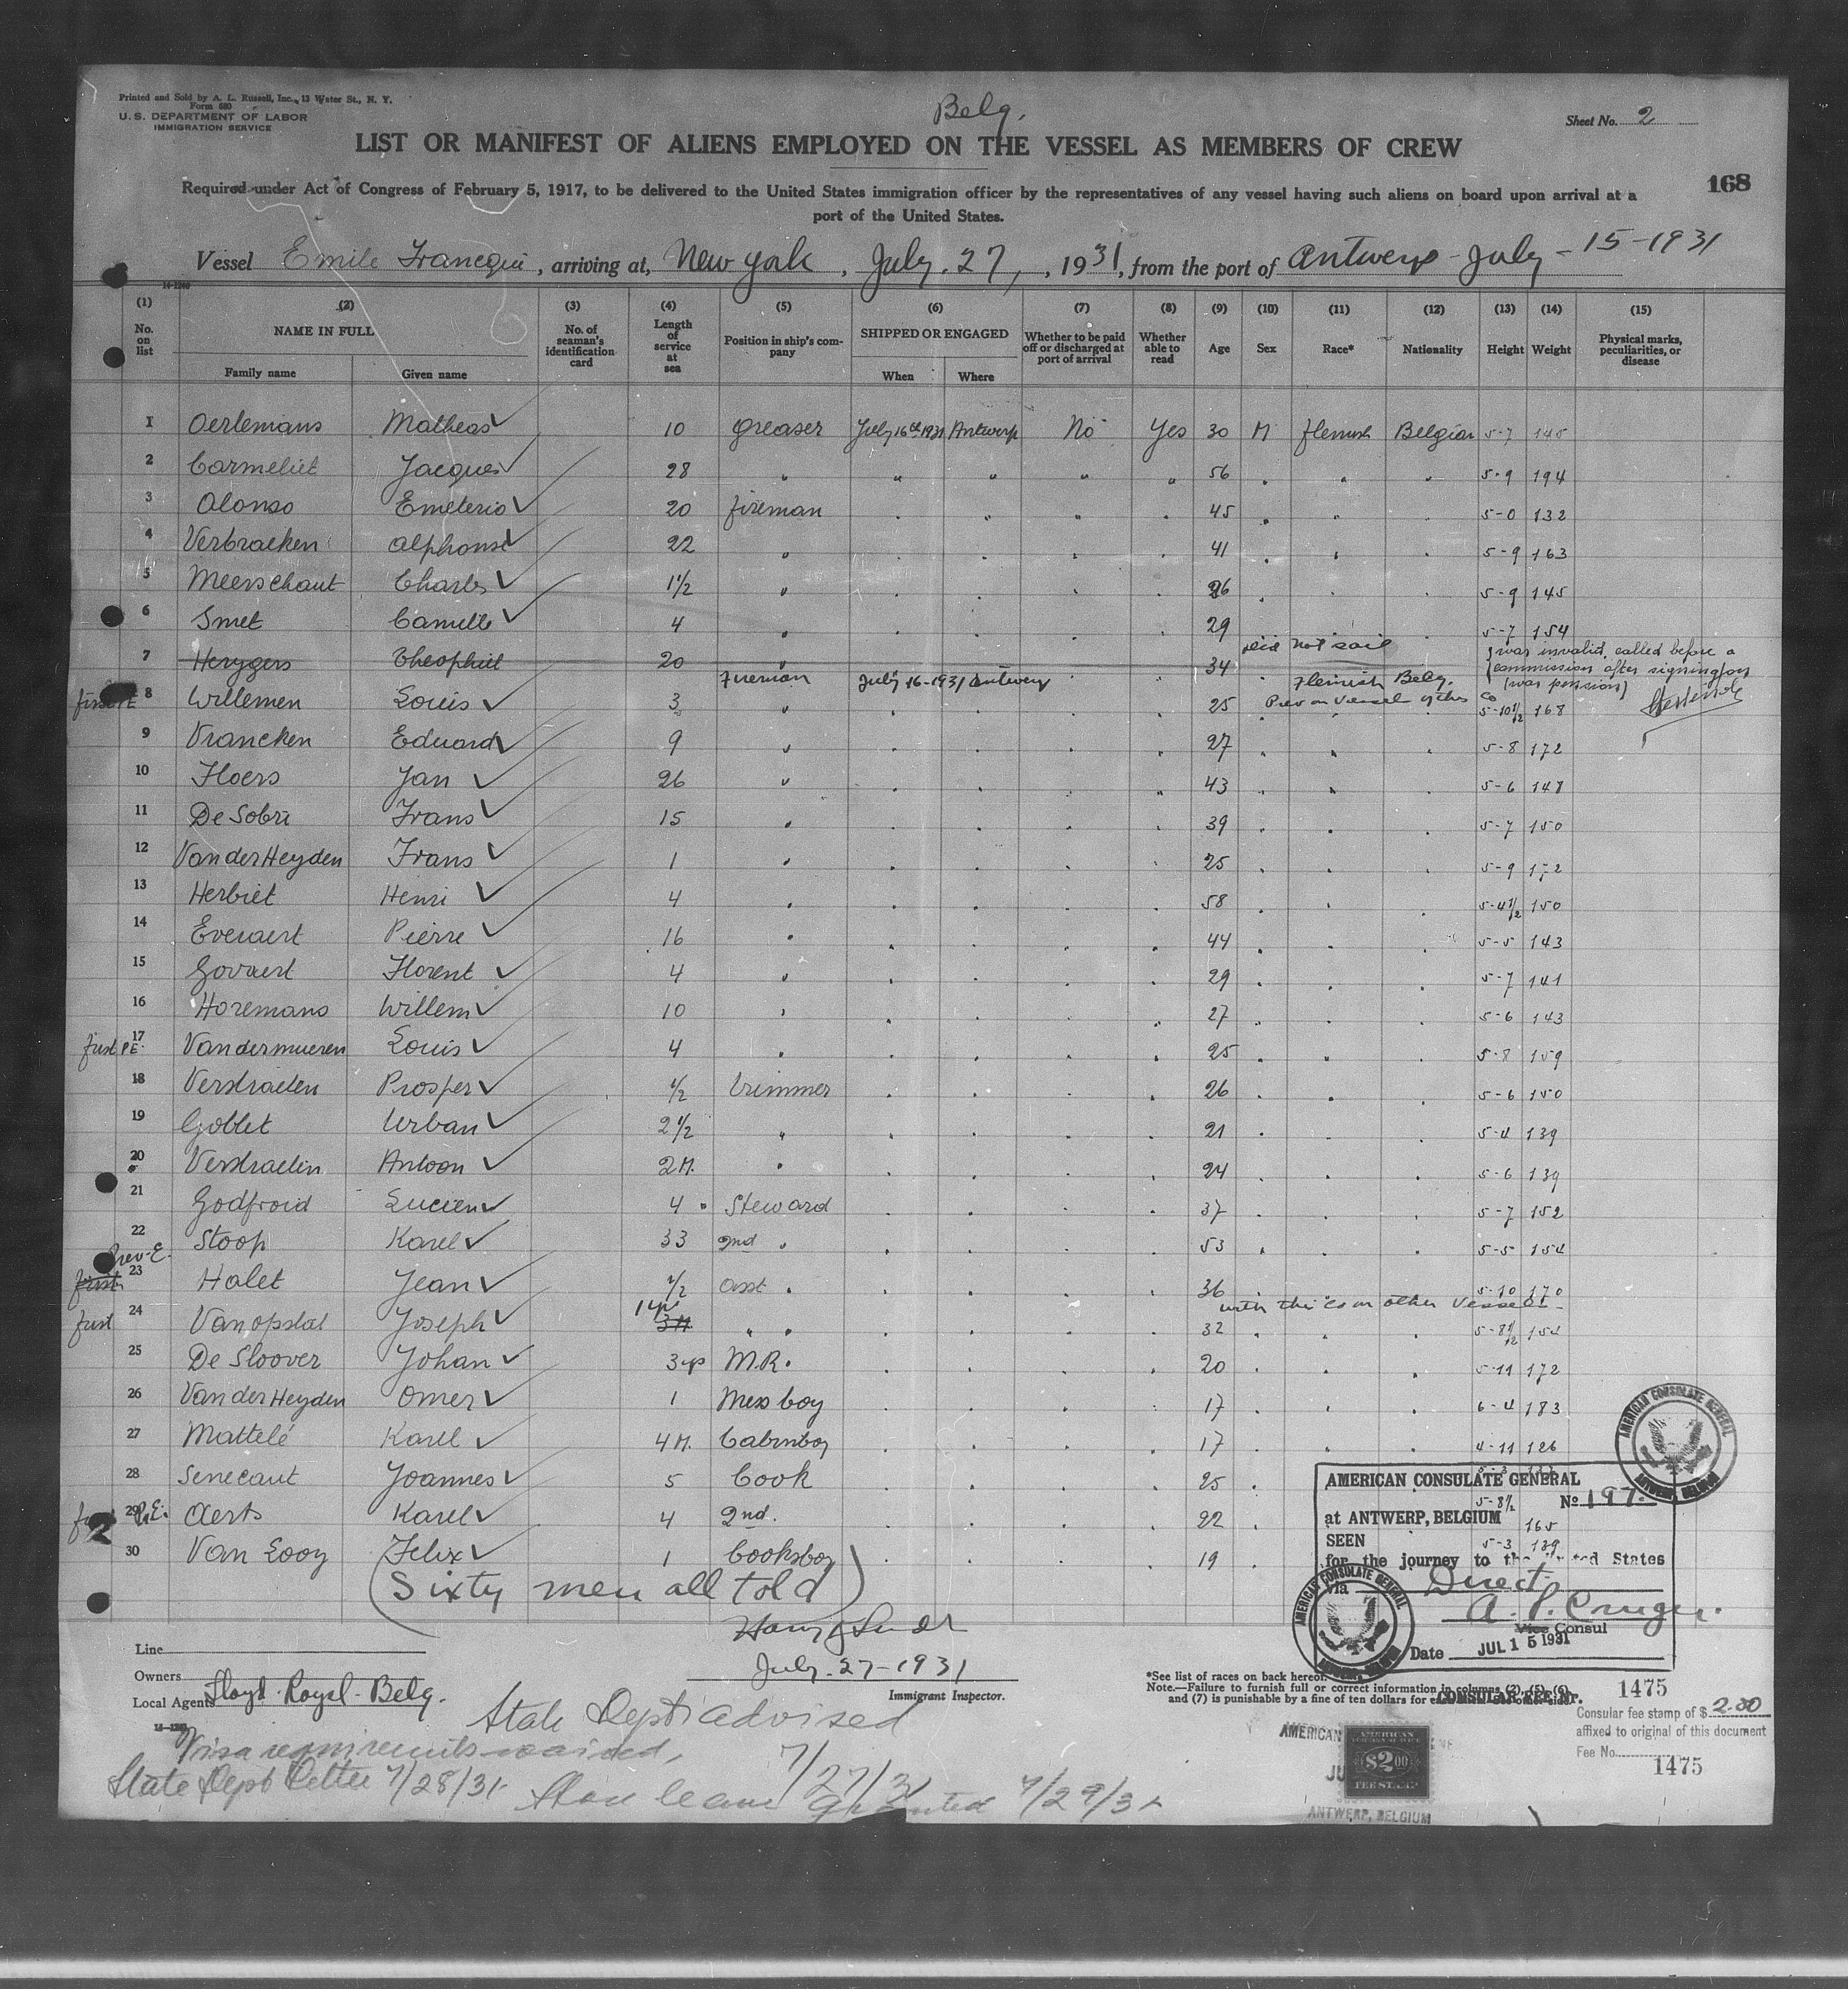 Printed and Sold by A. L. Russell, Inc., 13 Water St., N. Y.
Form 680
U. S. DEPARTMENT OF LABOR
IMMIGRATION SERVICE
Belg.
Sheet No. 2
LIST OR MANIFEST OF ALIENS EMPLOYED ON THE VESSEL AS MEMBERS OF CREW
168
Required under Act of Congress of February 5, 1917, to be delivered to the United States immigration officer by the representatives of any vessel having such aliens on board upon arrival at a
port of the United States.
Vessel Emile Francqui, arriving at, New York, July. 27, , 1931, from the port of Antwerp - July - 15-1931
14-1240
(1) (2) (3) (4) (5) (6) (7) (8) (9) (10) (11) (12) (13) (14) (15)
No. on list NAME IN FULL Family name Given name No. of seaman's identification card Length of service at sea Position in ship's company SHIPPED OR ENGAGED When Where Whether to be paid off or discharged at port of arrival Whether able to read Age Sex Race* Nationality Height Weight Physical marks, peculiarities, or disease
1 Oerlemans Matheas ✓ 10 greaser July 16th 1931 Antwerp No Yes 30 M flemish Belgian 5-7 145
2 Carmeliet Jacques ✓ 28 " " " " " 56 " " " 5-9 194
3 Alonso Emeterio ✓ 20 fireman " " " " 45 " " " 5-0 132
4 Verbraeken Alphonse ✓ 22 " " " " " 41 " " " 5-9 163
5 Meerschaut Charles ✓ 1½ " " " " " 26 " " " 5-9 145
6 Smet Camille ✓ 4 " " " " " 29 " " " 5-7 154
7 Herygers Theophiel 20 " 34 did not sail was invalid, called before a
commission after signing on
(was pension)
Fireman July 16-1931 Antwerp Flemish Belg.
8 Willemen Louis ✓ 3 " " " " " 25 Prev on vessel of this Co 5-10½ 168
9 Vrancken Eduard ✓ 9 " " " " " 27 " " " 5-8 172
10 Floers Jan ✓ 26 " " " " " 43 " " " 5-6 147
11 De Sobri Frans ✓ 15 " " " " " 39 " " " 5-7 150
12 Van der Heyden Frans ✓ 1 " " " " " 25 " " " 5-9 172
13 Herbiet Henri ✓ 4 " " " " " 58 " " " 5-4½ 150
14 Everaert Pierre ✓ 16 " " " " " 44 " " " 5-5 143
15 Govaert Florent ✓ 4 " " " " " 29 " " " 5-7 141
16 Horemans Willem ✓ 10 " " " " " 27 " " " 5-6 143
first P.E. 17 Vandermueren Louis ✓ 4 " " " " " 25 " " " 5-8 159
18 Verstraelen Prosper ✓ ½ trimmer " " " " 26 " " " 5-6 150
19 Goblet Urban ✓ 2½ " " " " " 21 " " " 5-4 139
20 Verstraelin Antoon ✓ 2M. " " " " " 24 " " " 5-6 139
21 Godfroid Lucien ✓ 4 Steward " " " " 37 " " " 5-7 152
22 Stoop Karel ✓ 33 2nd " " " " " 53 " " " 5-5 154
Prev-E. first 23 Halet Jean ✓ ½ asst " " " " " 36 5-10 170
with this Co on other vessels
first 24 Vanopstal Joseph ✓ 1yr 3M " " " " " " 32 " " " 5-8½ 154
25 De Sloover Johan ✓ 3 M.R. " " " " 20 " " " 5-11 172
26 Van der Heyden Omer ✓ 1 Mess boy " " " " 17 " " " 6-4 183
27 Mattelé Karel ✓ 4M. Cabinboy " " " " 17 " " " 4-11 126
28 Senecaut Joannes ✓ 5 Cook " " " " 25 "
29 P.E. Aerts Karel ✓ 4 2nd. " " " " 22 " 5-8½ 165
30 Van Looy Felix ✓ 1 Cooksboy " " " " 19 " 5-3 139
(Sixty men all told)
AMERICAN CONSULATE GENERAL
No 197
at ANTWERP, BELGIUM
SEEN
for the journey to the United States
via Direct
A. P. Cruger.
Vice Consul
Date JUL 15 1931
AMERICAN CONSULATE GENERAL ANTWERP, BELGIUM
AMERICAN CONSULATE GENERAL ANTWERP, BELGIUM
Line
Owners
Local Agents Lloyd Royal-Belg.
July-27-1931
Immigrant Inspector.
*See list of races on back hereof.
Note.—Failure to furnish full or correct information in columns (2), (5), (6),
and (7) is punishable by a fine of ten dollars for each
CONSULAR FEE Nr. 1475
Consular fee stamp of $ 2.00
affixed to original of this document
Fee No.
1475
State Dept advised
7/27/31
Visa requirements waived,
State Dept Letter 7/28/31
Shore leave granted 7/29/31
AMERICAN
$2.00
FEE STAMP
ANTWERP, BELGIUM